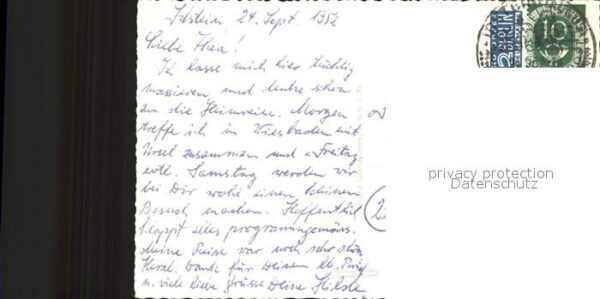 Idstein, 24. Sept. 1952
Liebe Thea!
Ich lasse mich hier tüchtig
massieren und denke schon
an die Heimreise. Morgen
treffe ich in Wiesbaden mit
Ursel zusammen und Freitag
evtl. Samstag werden wir
bei Dir wohl einen kleinen
Besuch machen. Hoffentlich
klappt alles programmgemäss.
Meine Reise war noch sehr schön
Herzl. Dank für Deinen lb. Brief
u. viele liebe Grüsse Deine Hilde
2
BERLIN
10
privacy protection
Datenschutz